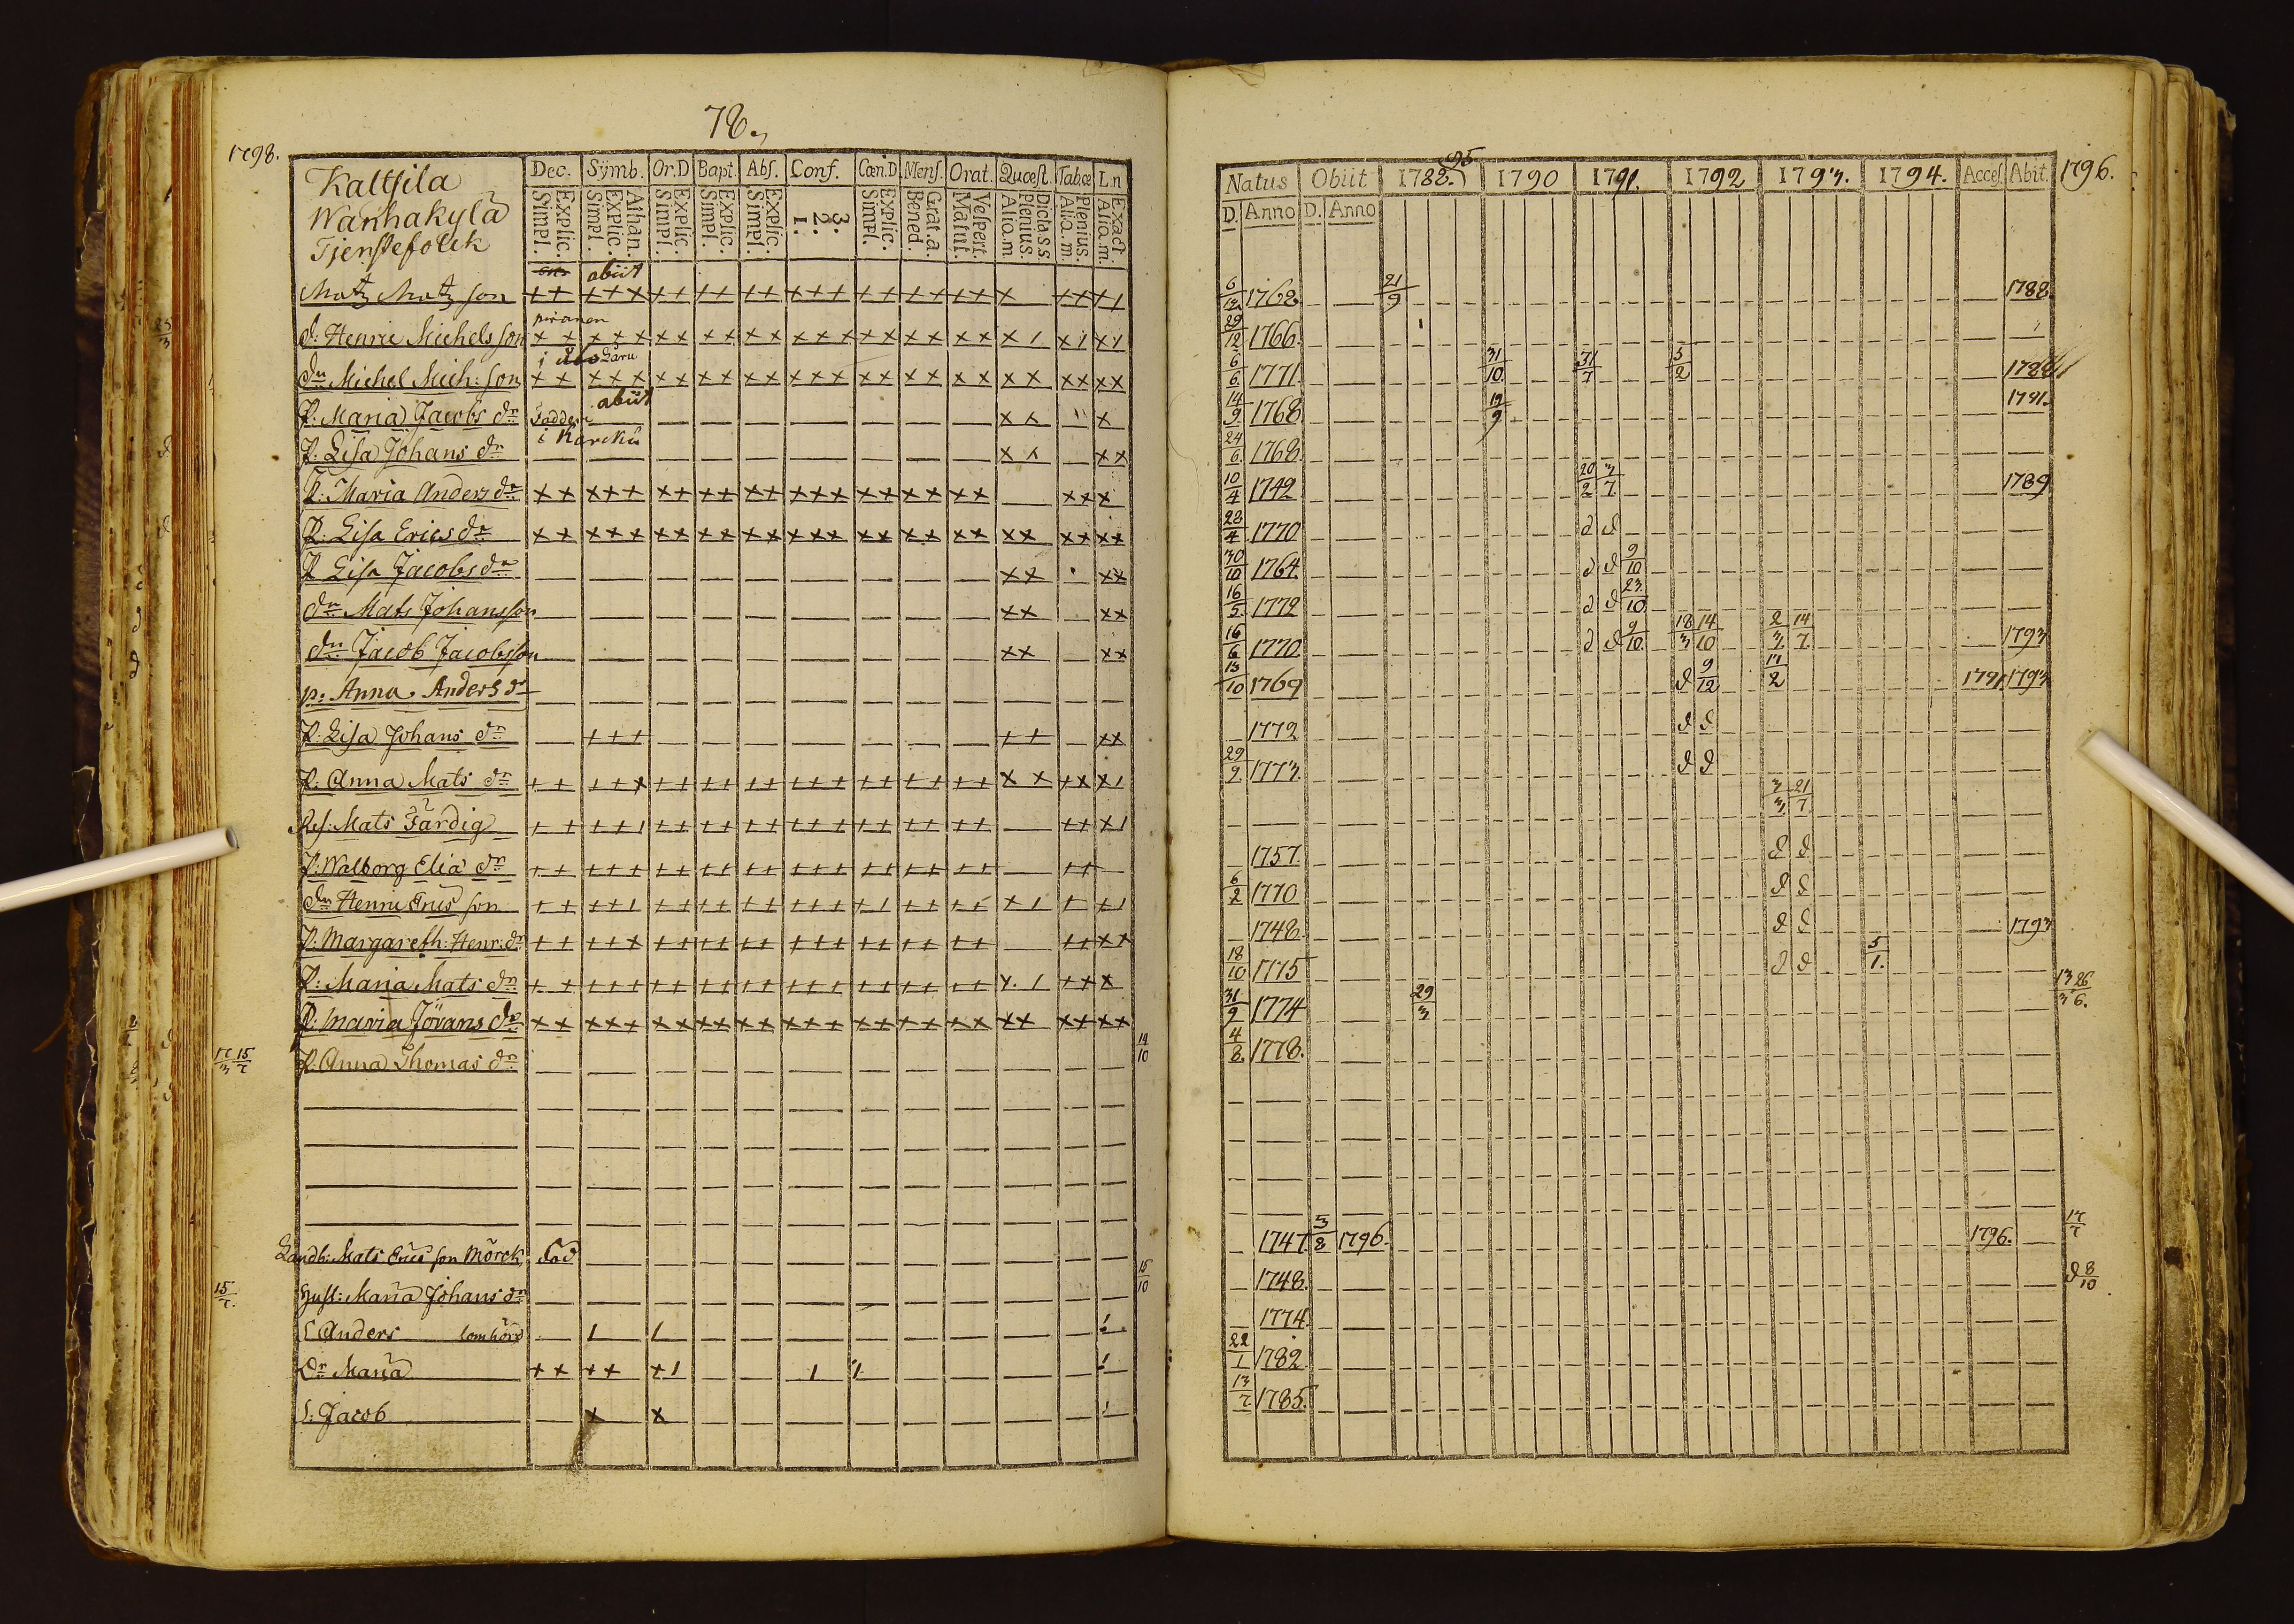 78.
1798.
Kaltsila
Wanhakylä
Tjenstefolck
Dec. Symb. Or.D Bapt. Abs. Conf. Cœn.D Mens. Orat. Quæst. Tabœ Ln
Explic. Simpl. Athan. Explic. Simpl. Explic. Simpl. Explic. Simpl. Explic. Simpl. 3. 2. 1. Explic. Simpl. Grat.a. Bened. Vespert. Matut. Dicta.s.s. Plenius. Aliq.m Plenius. Aliq.m. Exact. Aliq.m.
abiit
Matz Matz son
d: Henric Michels son
i Åbo Län
dn Michel Mich: son
abiit
P. Maria Jacobs dr
i Karcku
P: Lisa Johans dr
P: Maria Anders dr
P: Lisa Erics dr
P Lisa Jacobs dr
dn Mats Johansson
dn Jacob Jacobsson
p. Anna Anders dr
P: Lisa Johans dr
P: Anna Mats dr
Ref: Mats Färdig
P: Walborg Elia dr
dn Henric Erics son
P: Margareth: Henr: dr
P: Maria Mats dr
P: Maria Jörans dr
P. Anna Thomas dr
15/7
19/10
Landb: Mats Erics son Mörck död
15/10
15/7.
Hust: Maria Johans dr
S Anders lomhörd
Dr Maria
S: Jacob
Natus Obiit 1788. 95 1790 1791. 1792 1793. 1794. Acces. Abit. 1796.
D. Anno D. Anno
6/12 1768 21/9 1788
29/12 1766
6/6 1771 31/10. 31/7 5/2 1788
14/9 1768 19/9 1791.
24/6. 1768
10/4 1742 20/2 3/7 1789
28/4 1770 d d
30/10 1764 d d 9/10
16/5. 1772 d d 23/10.
16/6 1770 d d 9/10. 18/3 14/10 2/3 14/7. 1793
13/10 1769 d 9/12 17/2 1791 1793
1772 d d
29/9 1773. d d
3/3 21/7
1757. d d
6/2 1770 d d
1748 d d 1793
18/10 1775 d d 5/1.
31/9 1774 29/3 13/3 26/6.
4/8. 1778.
1747 3/8 1796. 1796. 17/7
1748. d 8/10
1774
22/1 1782
13/7 1785.